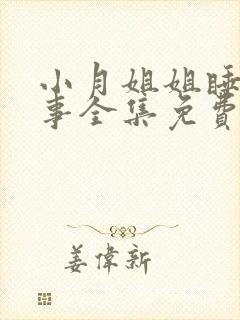 小月姐姐睡
事全集免費
姜偉新